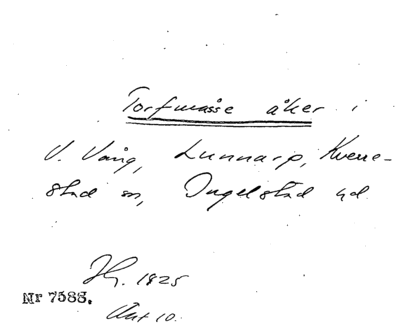 Torfmosse åker i
V. Vång, Lunnarp, Kverre-
stad sn, Ingelstad hd.
Nr 7588.
Ant 10.